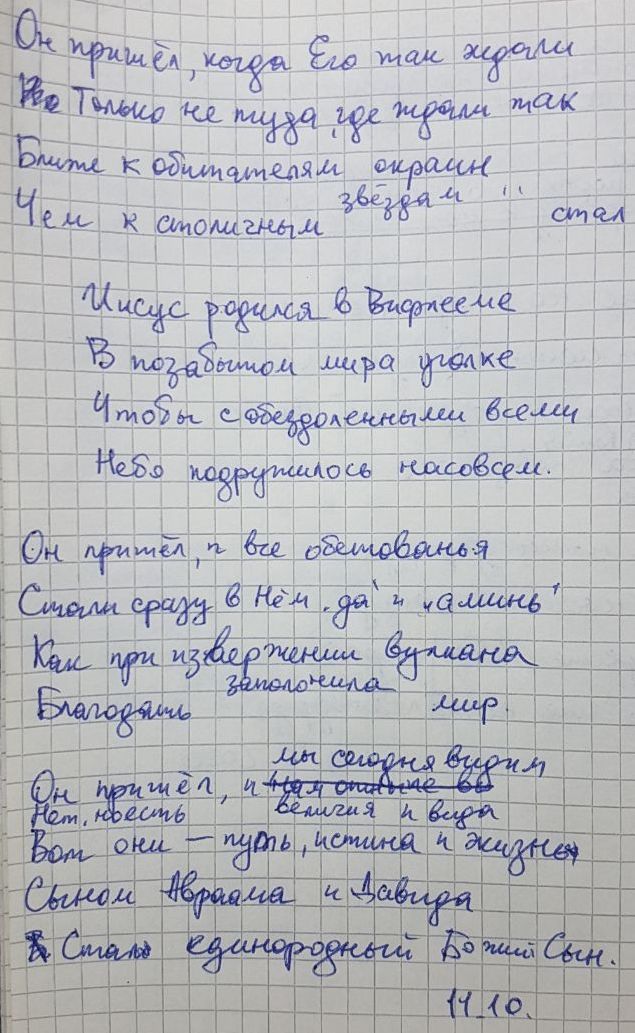 Он пришёл, когда Его так ждали
Только не туда, где ждали так
Ближе к обитателям окраин
Чем к столичным звёздам стал
Иисус родился в Вифлееме
В позабытом мира уголке
Чтобы с обездоленными всеми
Небо подружилось насовсем.
Он пришёл, и все обетованья
Стали сразу в Нём „да" и „аминь"
Как при извержении вулкана
Благодать заполонила мир.
мы сегодня видим
Он пришёл, и
Нет, несть величия и вида
Вот они — путь, истина и жизнь
Сыном Авраама и Давида
Стал единородный Божий Сын.
11.10.